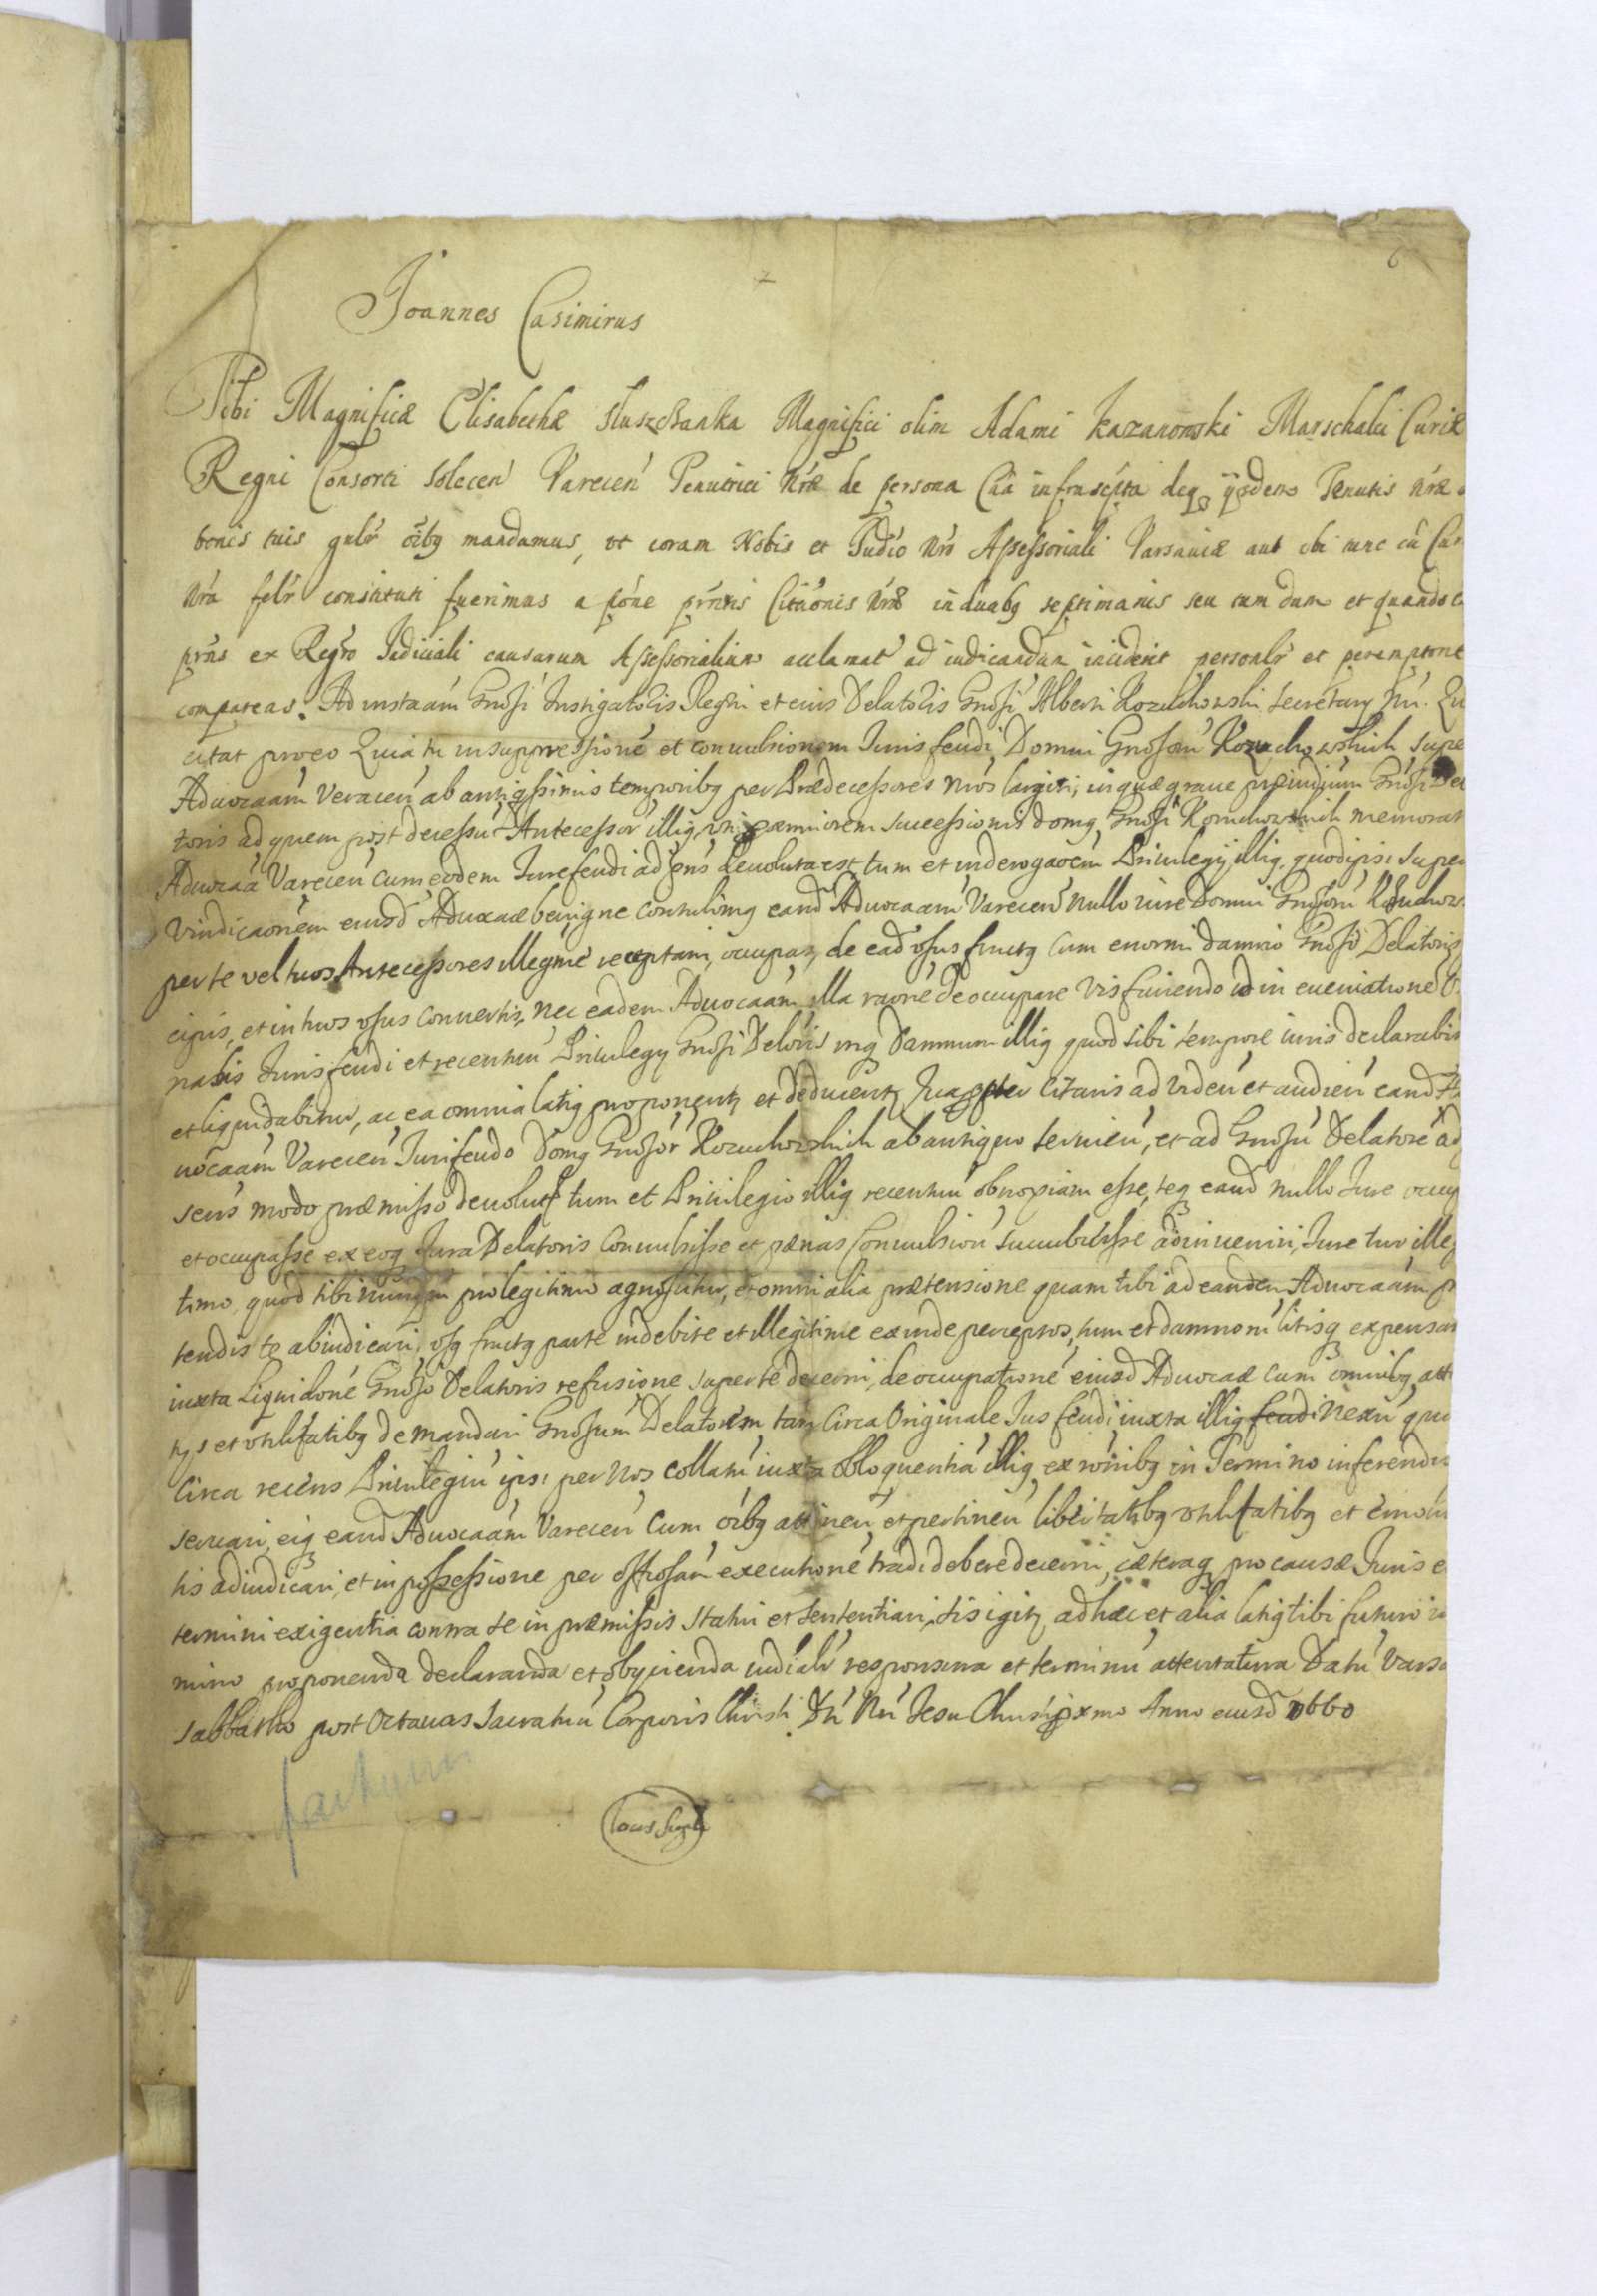 6
Joannes Casimirus
Tibi Magnificæ Elisabethæ Sluszczanka Magnifici olim Adami Kazanowski Marschalci Curiæ
Regni Consorti Solecen Varecen Tenutrici Nræ de persona Tua infrascripta deq ijsdem Tenutis Nræ
bonis tuis gnlr oibq mandamus, vt coram Nobis et Judio Nro Assessoriali Varsaviæ aut vbi tunc cu Cur
Nra felr constituti fuerimus a pone pntis Citaonis Nræ in duabq septimanis seu tum dum et quando c
pns ex Regro Judiciali causarum Assessorialium acclamat ad iudicandum inciderit personlr et peremptorie
compareas. Ad instaam Gnosi Instigatoris Regni et eius Delatoris Gnosi Alberti Kozuchowski Secretarij Nri. Qu
citat pro eo Quia tu in suppressione et convulsionem Juris feudi Domui Gnosoru Kozuchowskich supe
Advocaam Veracen ab antiqssimis temporibq per Prædecessores Nros largiti, in quæ graue præiudicium Gnosi Del
toris ad quem post decessu Antecessor illiq, vti proximiorem successionis domq Gnosi Kozuchowskich memorat
Advocaa Varecen cum eodem Jure feudi ad pns devoluta est tum et in derogaoem Privilegij illiq quod ipsi super
Vindicaonem eiusd Advocaæ benigne contulimq eand Advocaam Varecen nullo iure Domui Gnosoru Kozuchow
per te vel tuos Antecessores illegime receptam, occupas, de ead vsus fructq cum enormi damno Gnosi Delatoris
cipis, et in tuos vsus convertis, nec eadem Advocaam illa raone deoccupare vis
nalis Juris feudi et recentiu Privilegij Gnosi Deloris inq Damnum illiq quod tibi tempore iuris declarabis
et liqudabitur, ac ea omnia latiq proponentz et deducentz Jta citaris ad viden et audien eand A
vocaam Varecen Juri feudo Domq Gnosor Kozuchowskich ab antiquo servien, et ad Gnosu Delatore ad
sens modo præmisso devolut tum et Privilegio illiq recentiu obnoxiam esse, teq eand nullo Jure occup
et occupasse ex eoq Jura Delatoris Convulsisse et pænas Convulsion succubuisse adinveniri, Jure tuo illeg
timo, quod tibi nunqm pro legitimo agnoscitur, et omni alia prætensione quam tibi ad eandem Advocaam p
tendis te abiudicari, vsq fructq parte indebite et illegitime exinde perceptos, tum et damnoru litisq expensar
iuxta Liquidone Gnosi Delatoris refusione super te decerni, de occupatione eiusd Advocaæ cum omnibq att
tijs et vtilitatibq demandari Gnosum Delatorem tam Circa Originale Jus feudi iuxta illiq feudi nexu qua
Circa recens Privilegiu ipsi per Nos collatu iuxta obloquentia illiq ex ronibq in Termino inferendis
servari, eiq eand Advocaam Varecen Cum oibq attinen et pertinen libertatibq vtilitatibq et emolum
tis adiudicari, et in possessione per executione tradi debere decerni, cæteraq pro causæ Juris e
termini exigentia contra te in præmissis statui et sententiari, sis igitz ad hæc et alia latiq tibi futuro
mino proponenda declaranda et obijcienda iudialr responsura et terminu attentatura Datu Varsa
Sabbatho post Octavas Sacratiu Corporis Christi Dni Nri Jesu Christi pxmo Anno eiusd 1660
Locus Sigli